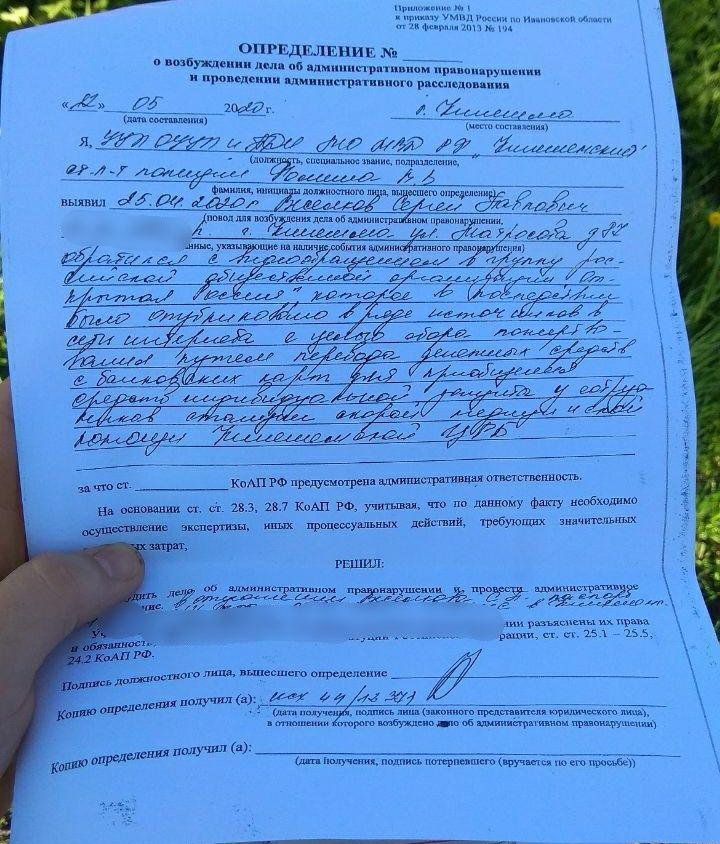 Приложение № 1
к приказу УМВД России по Ивановской области
от 28 февраля 2013 № 194
ОПРЕДЕЛЕНИЕ №
о возбуждении дела об административном правонарушении
и проведении административного расследования
« » 05 2020 г. г. Кинешма
(дата составления) (место составления)
Я, УУП ОУУП и ПДН МО МВД РФ „Кинешемский"
(должность, специальное звание, подразделение,
ст. л-т полиции
фамилия, инициалы должностного лица, вынесшего определение)
выявил 25.04.2020г Сергей Павлович
(повод для возбуждения дела об административном правонарушении,
г. Кинешма ул. Матросова д
нные, указывающие на наличие события административного правонарушения)
обратился с в группу рос-
сийской общественной организации „От-
крытая Россия", которое в последствии
было опубликовано в ряде источников в
сети интернета с целью сбора пожертво-
вания путем перевода денежных средств
с банковских карт для приобретения
средств индивидуальной защиты у сотруд
ников станции скорой медицинской
помощи Кинешемской ЦРБ
за что ст. КоАП РФ предусмотрена административная ответственность.
На основании ст. ст. 28.3, 28.7 КоАП РФ, учитывая, что по данному факту необходимо
осуществление экспертизы, иных процессуальных действий, требующих значительных
ых затрат,
РЕШИЛ:
дить дело об административном правонарушении и провести административное
ние. в отношении
нии разъяснены их права
и обязанность, рации, ст. ст. 25.1 – 25.5,
24.2 КоАП РФ.
Подпись должностного лица, вынесшего определение
Копию определения получил (а): исх
(дата получения, подпись лица (законного представителя юридического лица),
в отношении которого возбуждено дело об административном правонарушении)
Копию определения получил (а):
(дата получения, подпись потерпевшего (вручается по его просьбе))